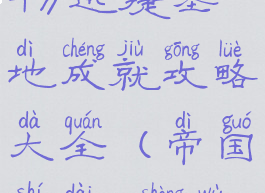 dì chéng jiù gōng lüè
地成就攻略
dà quán dì guó
大全(帝国
shí dài shèng wù